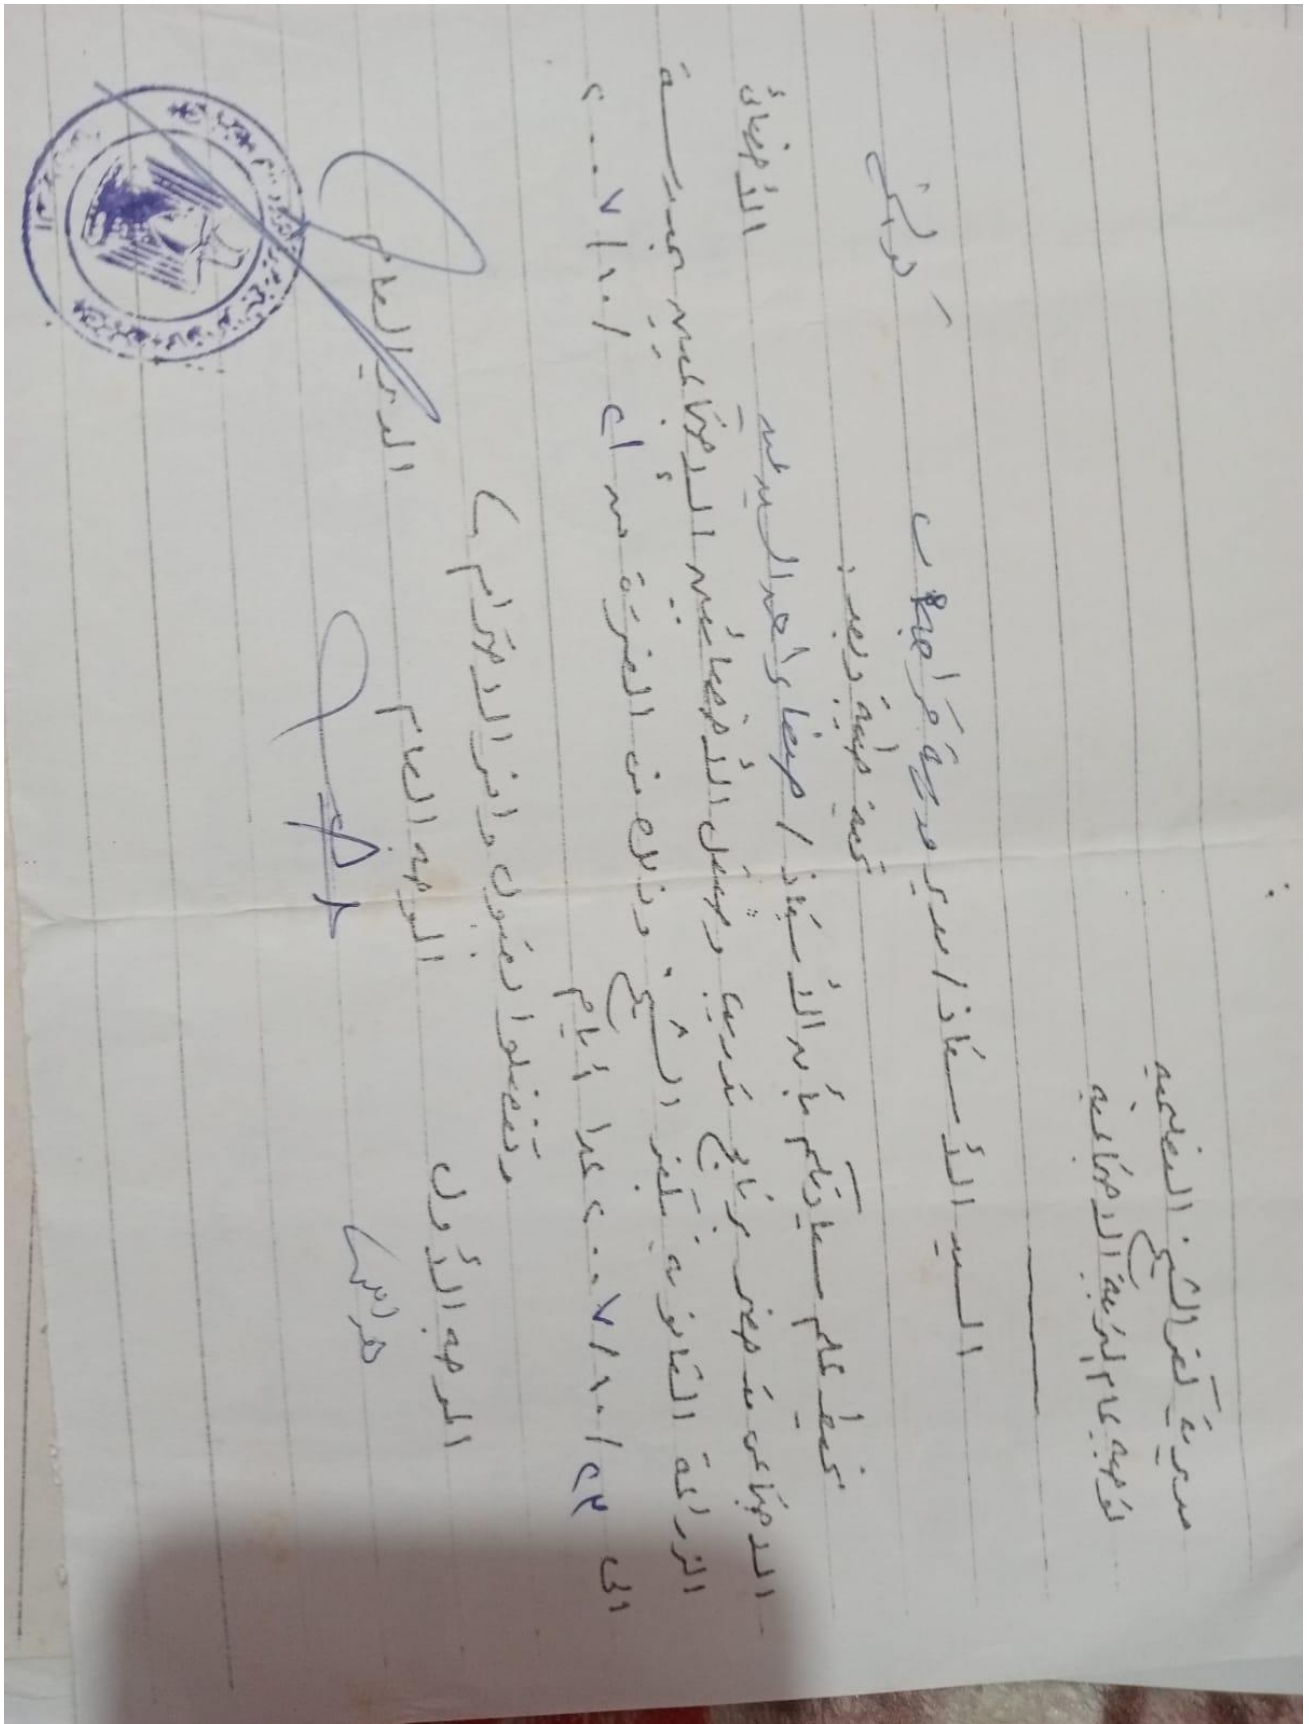 مديرية كفر الشيخ التعليمية
توجيه عام التربية الاجتماعية
السيد الأستاذ / مدير مدرسة
تحية طيبة وبعد ..
نحيط علم سيادتكم بأن الأستاذ / أحمد السيد الأخصائى
الاجتماعى قد حضر برنامج تدريب وصقل الأخصائيين الاجتماعيين بمدرسة
الزراعة الثانوية بكفر الشيخ . وذلك فى الفترة من ١٠ / ٢٠٠٧
الى ٢٣ / ١٠ / ٢٠٠٧ عدا أيام
وتفضلوا بقبول وافر الاحترام
الموجه الأول الموجه العام المدير العام